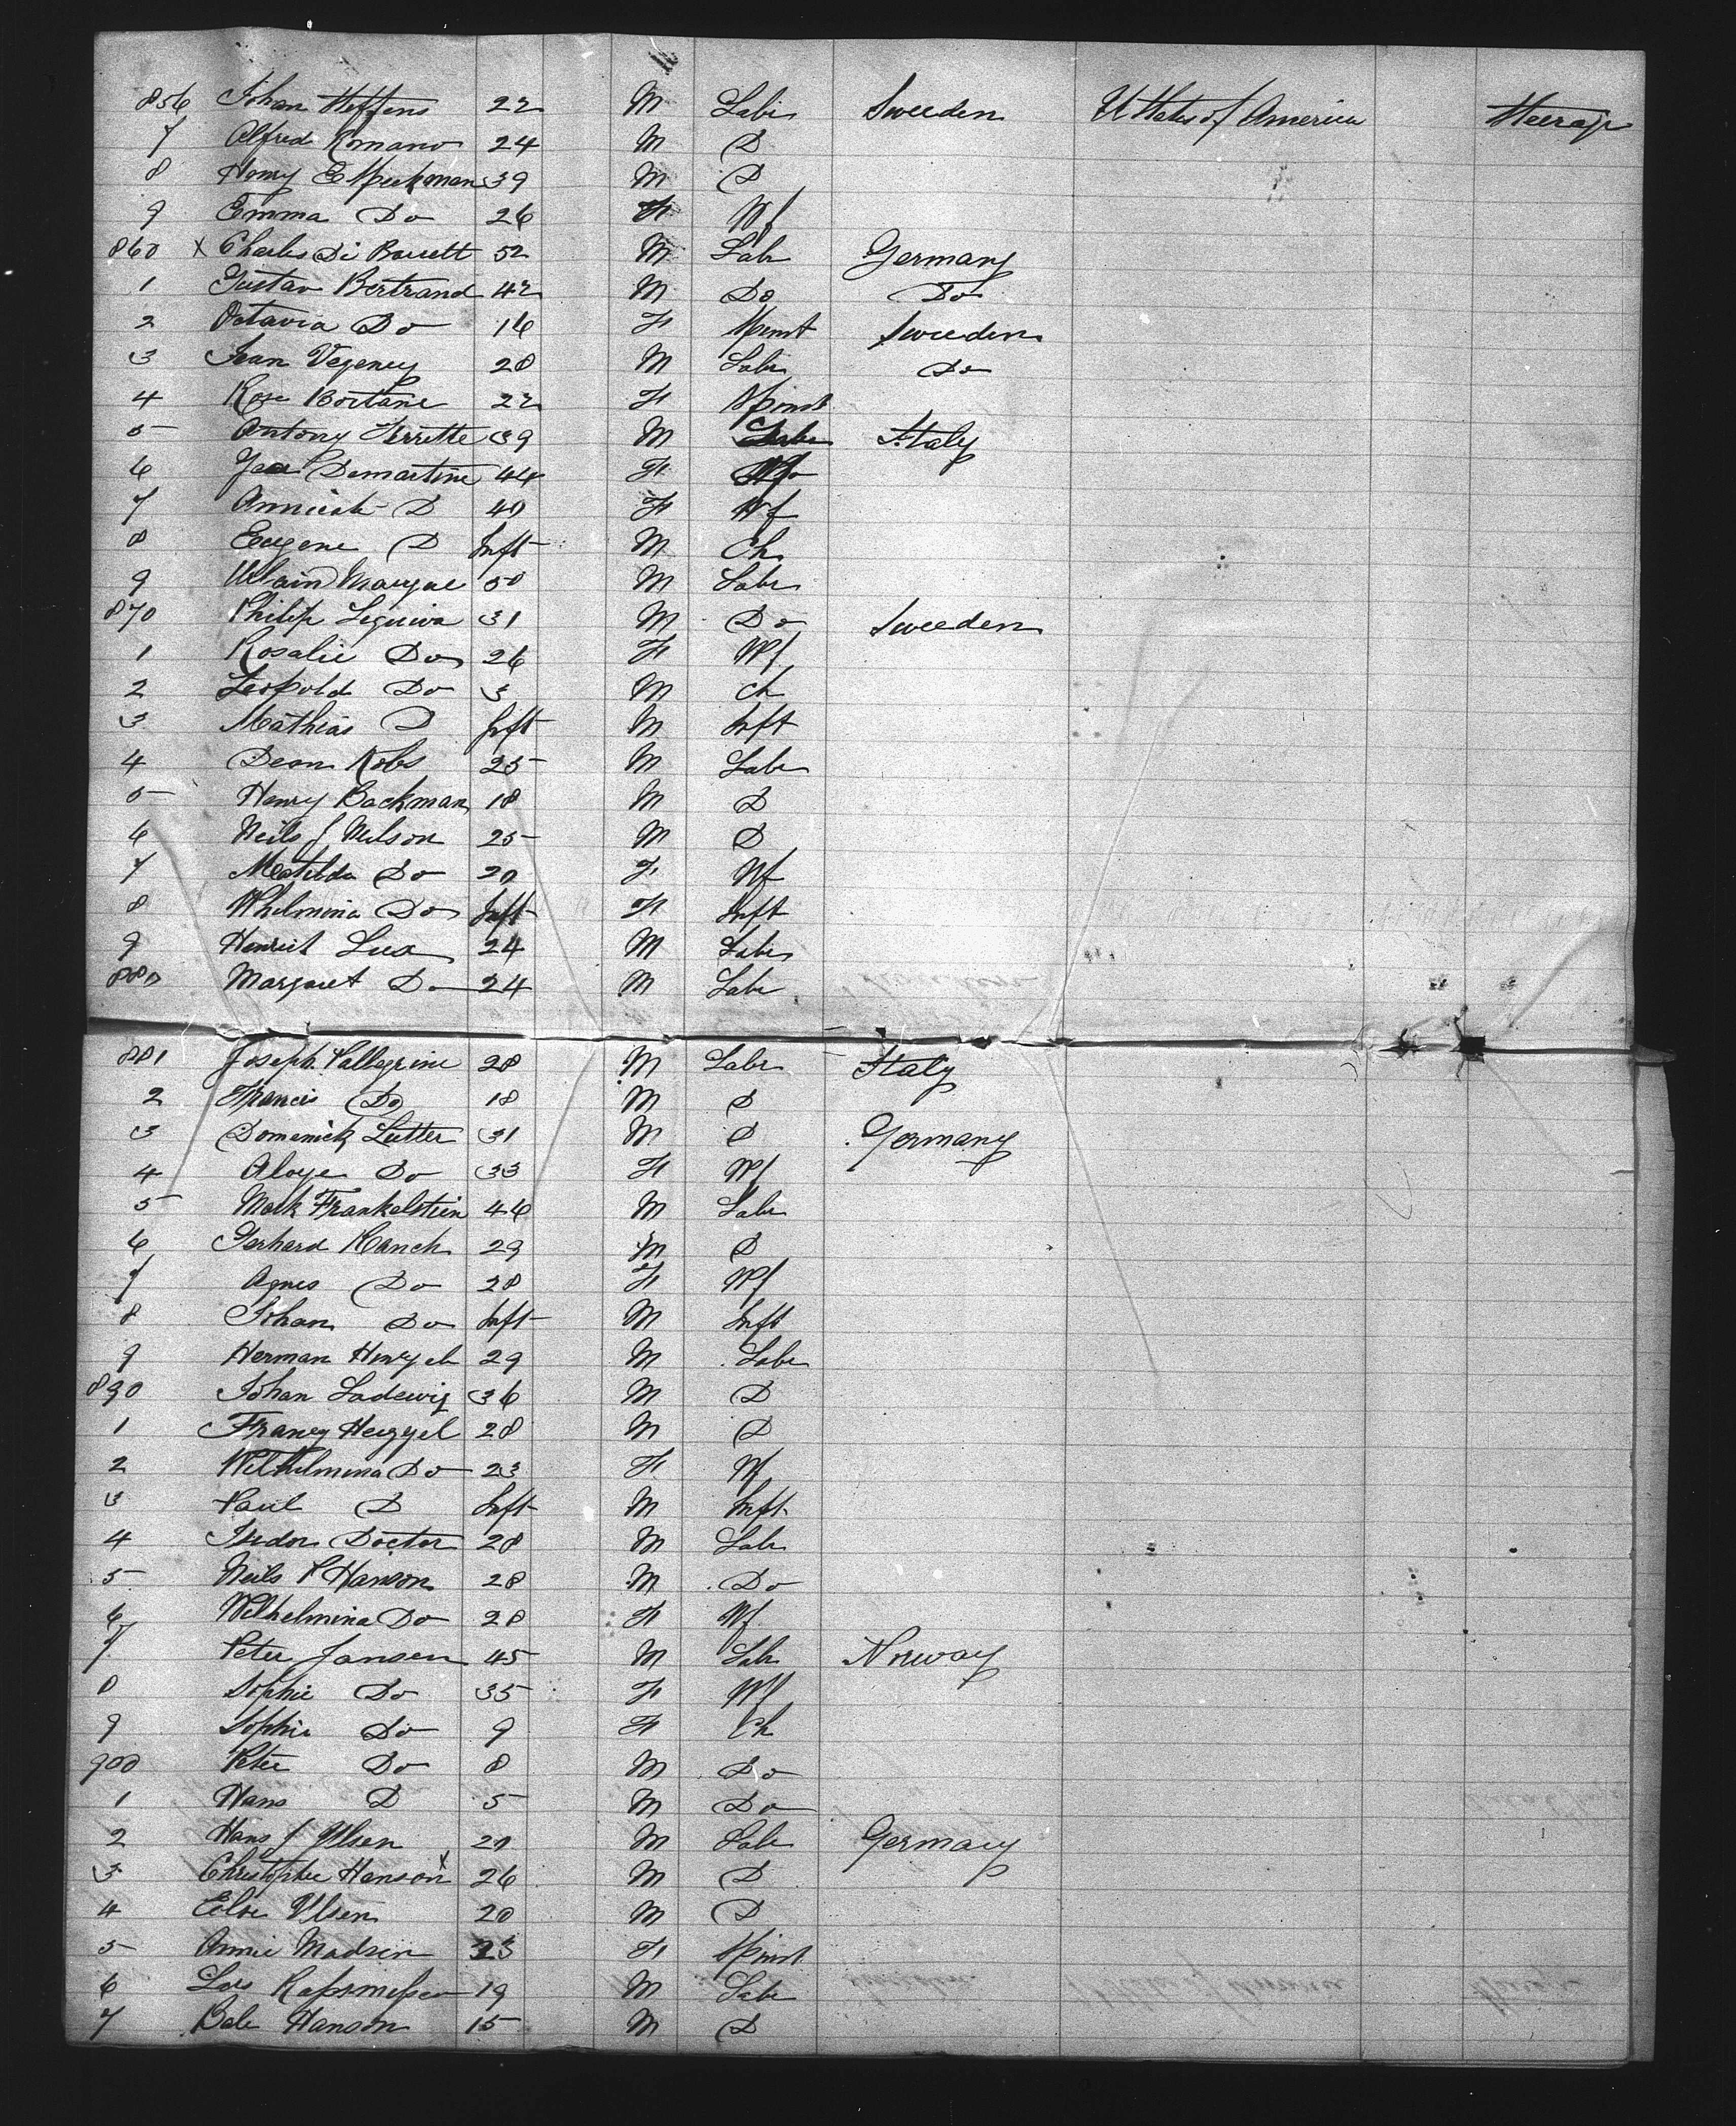 856 Johan Steffens 22 M Labr Sweeden U States of America Steerage
7 Alfred Romano 24 M D
8 Henry E Speekman 39 M D
9 Emma Do 26 F Wf
860 x Charles Di Barrett 52 M Labr Germany
1 Gustav Bertrand 42 M Do Do
2 Octavia Do 16 F Spinst Sweeden
3 Jean Vegeney 28 M Labr Do
4 Rose Bortane 22 F Spinst
5 Antony Ferrette 39 M Labr Italy
6 Demartine 44 F
7 D 40 F Wf
8 Eugene D Inft M Ch
9 50 M Labr
870 Philip Leguiva 31 M Do Sweeden
1 Rosalie Do 26 F Wf
2 Leopold Do 3 M Ch
3 Mathias D Inft M Inft
4 Dean Robs 25 M Labr
5 Henry Backman 18 M D
6 Neils J Neilson 25 M D
7 Matilda Do 20 F Wf
8 Whelmina Do Inft F Inft
9 Henrich Lux 24 M Labr
880 Margaret Do 24 M Labr
881 Joseph Pallegrine 28 M Labr Italy
2 Francis Do 18 M D
3 Domenick Lutter 31 M D Germany
4 Aloye Do 33 F Wf
5 Mark Frankelstein 46 M Labr
6 Gerhard Ranch 29 M D
7 Agnes Do 28 F Wf
8 Johan Do Inft M Inft
9 Herman Hengel 29 M Labr
890 Johan Ladewig 36 M D
1 Franz Heuzzel 28 M D
2 Wilhelmina Do 23 F Wf
3 Paul D Inft M Inft
4 Isidor Doctor 28 M Labr
5 Neils P Hanson 28 M Do
6 Wilhelmina Do 28 F Wf
7 Peter Jansen 45 M Labr Norway
8 Sophie Do 35 F Wf
9 Sophia Do 9 F Ch
900 Peter Do 8 M Do
1 Hans D 5 M Do
2 Hans J Olsen 20 M Labr Germany
3 Christopher Hanson x 26 M D
4 Olsen 20 M D
5 Annie Madsen 23 F Spinst
6 Lars 19 M Labr
7 Hanson 15 M D